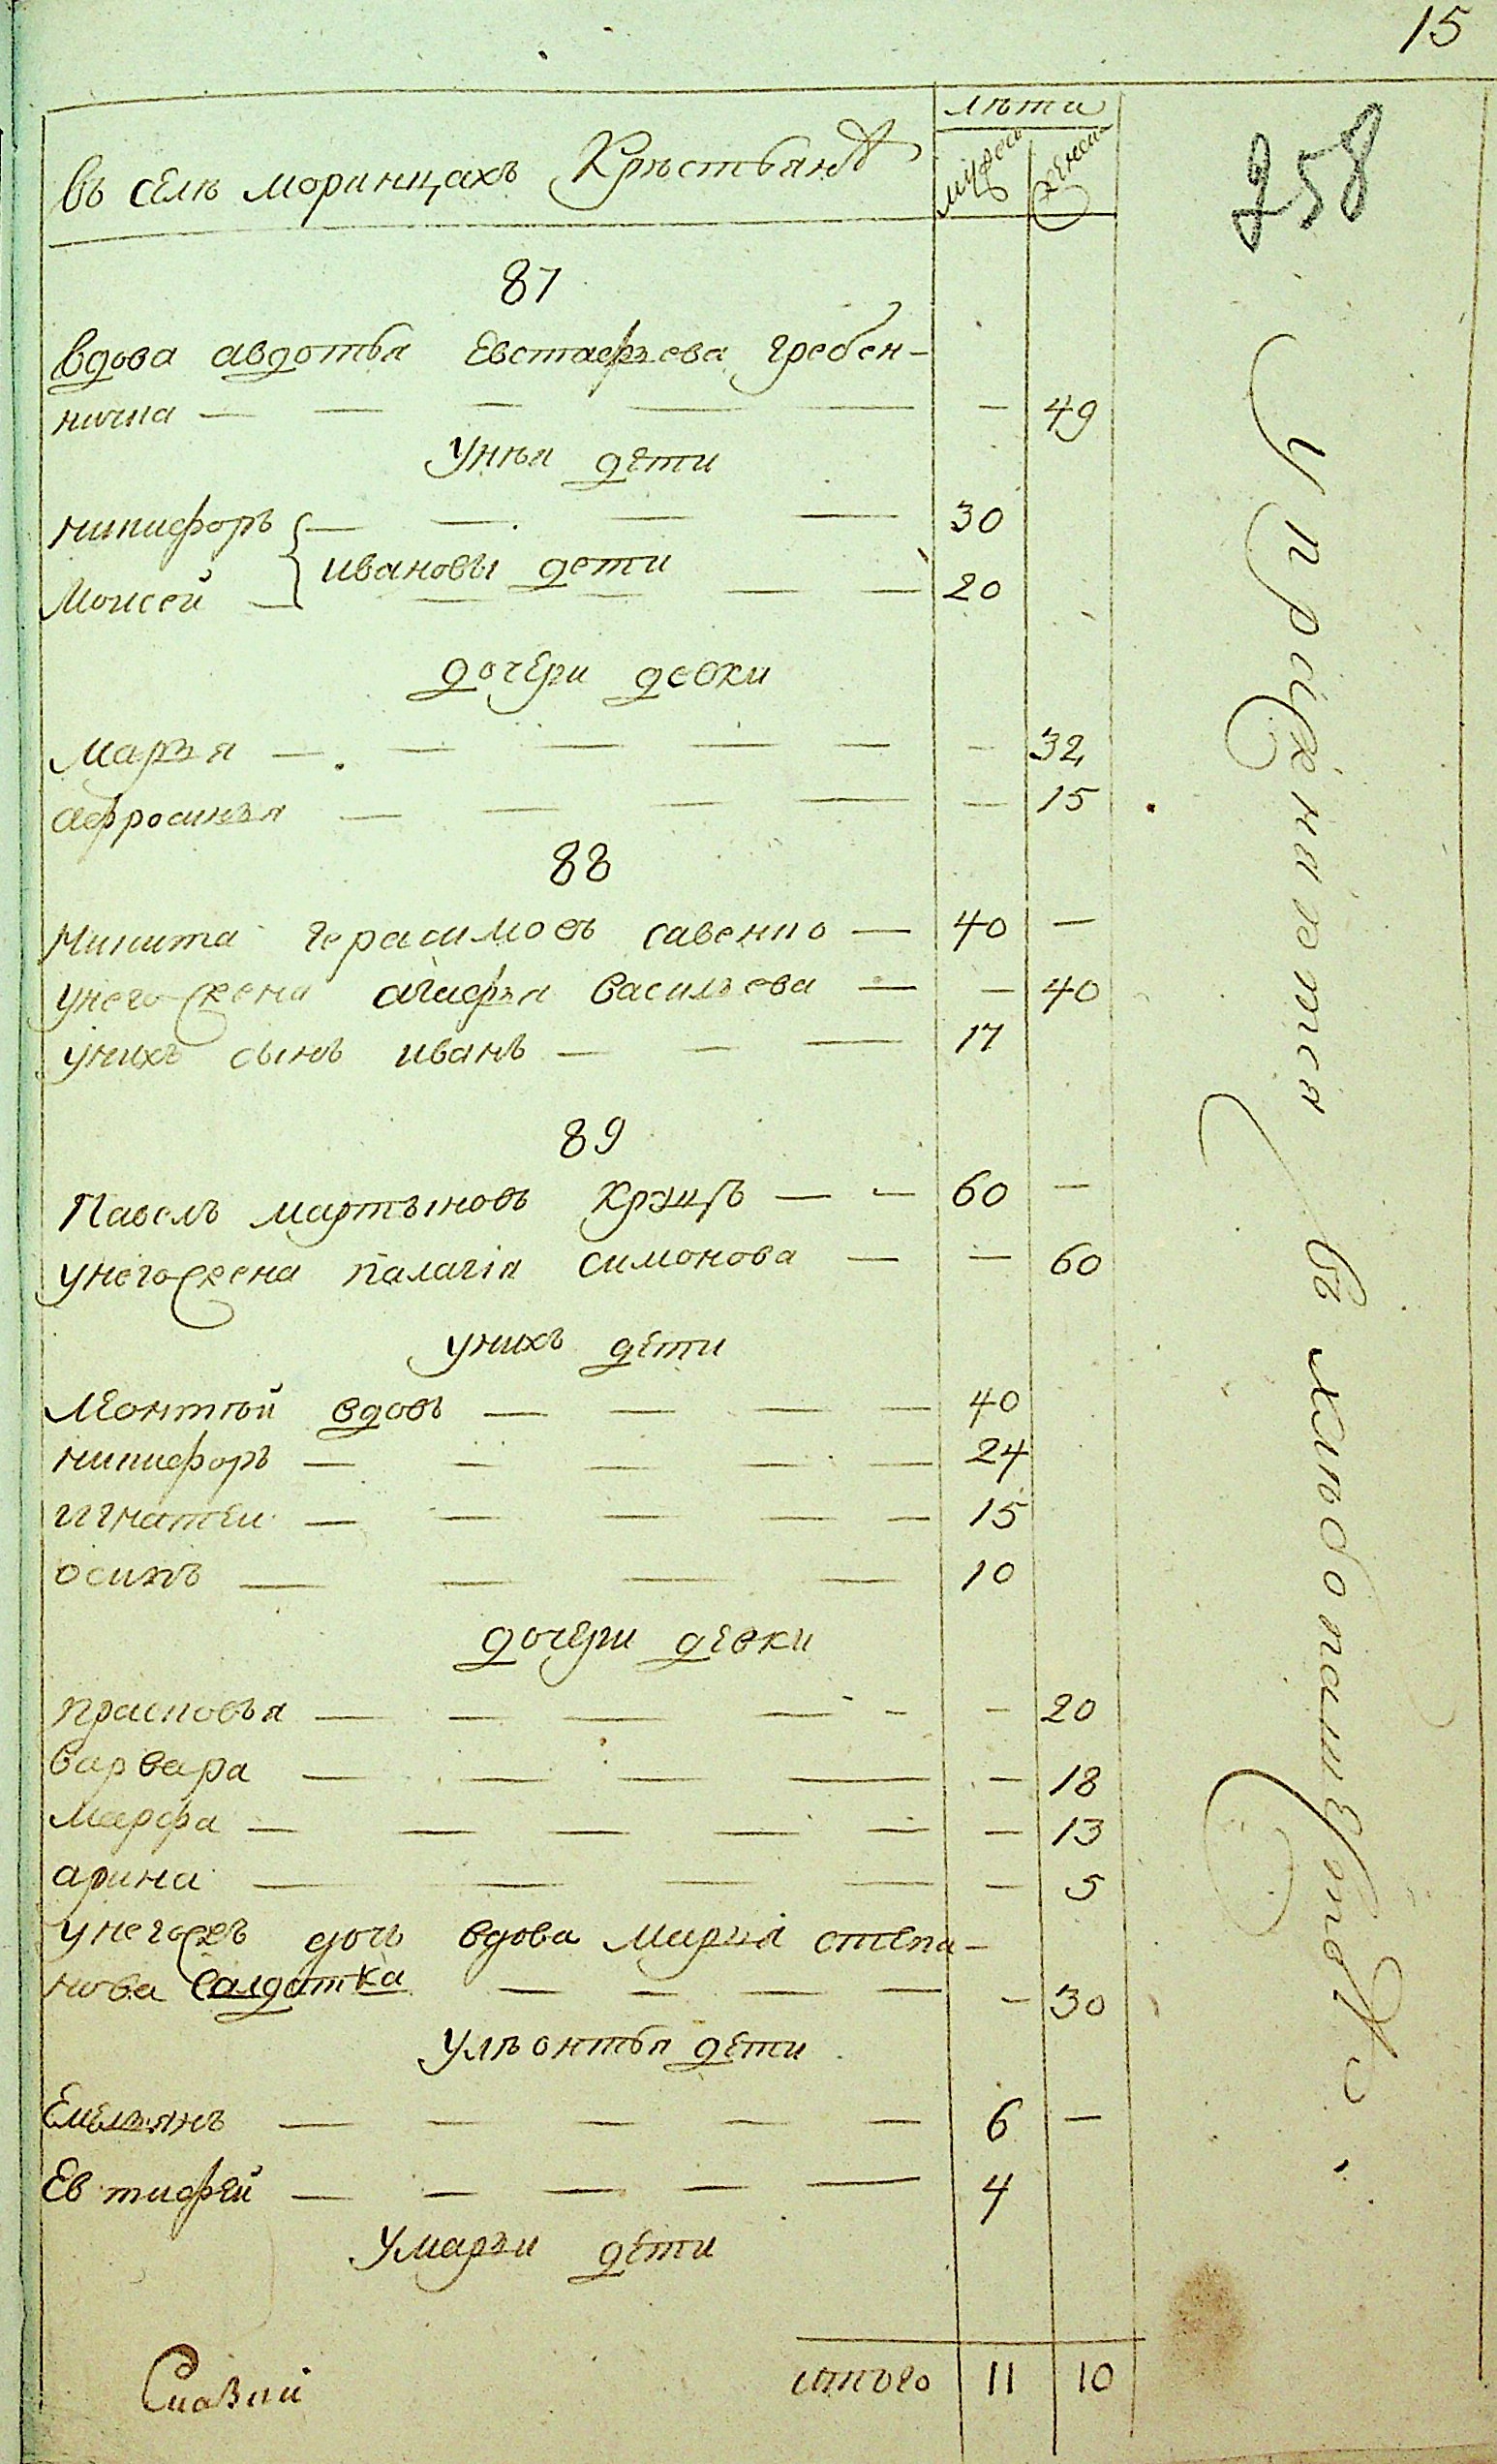 15
258
лѣта
въ селѣ моринцахъ Крѣстьянъ
мужеска
женска
87
вдова авдотья Евстафьева гребен-
нична — — — — — — 49
унѣя дети
никифоръ — — — — 30
ивановы дети
Моисей — — — — — 20
дочери девки
марья — — — — — — 32
афросинья — — — — — 15
88
Никита герасимовъ савенко — 40 —
унего жена агафья васильева — — 40
унихъ сынъ иванъ — — — 17
89
Павелъ мартыновъ — — 60 —
унего жена палагія симонова — — 60
унихъ дети
Леонтѣй вдовъ — — — — 40
никифоръ — — — — — 24
игнатеи — — — — — 15
осипъ — — — — 10
дочери девки
прасковья — — — — — — 20
варвара — — — — — 18
марфа — — — — — — 13
арина — — — — — 5
унегожъ дочь вдова марья степа-
нова салдатка — — — — — 30
улѣонтья дети
Емельянъ — — — — — 6 —
Евтифей — — — — — 4
умарьи дети
итого 11 10
упражняетса в хлебопашестве